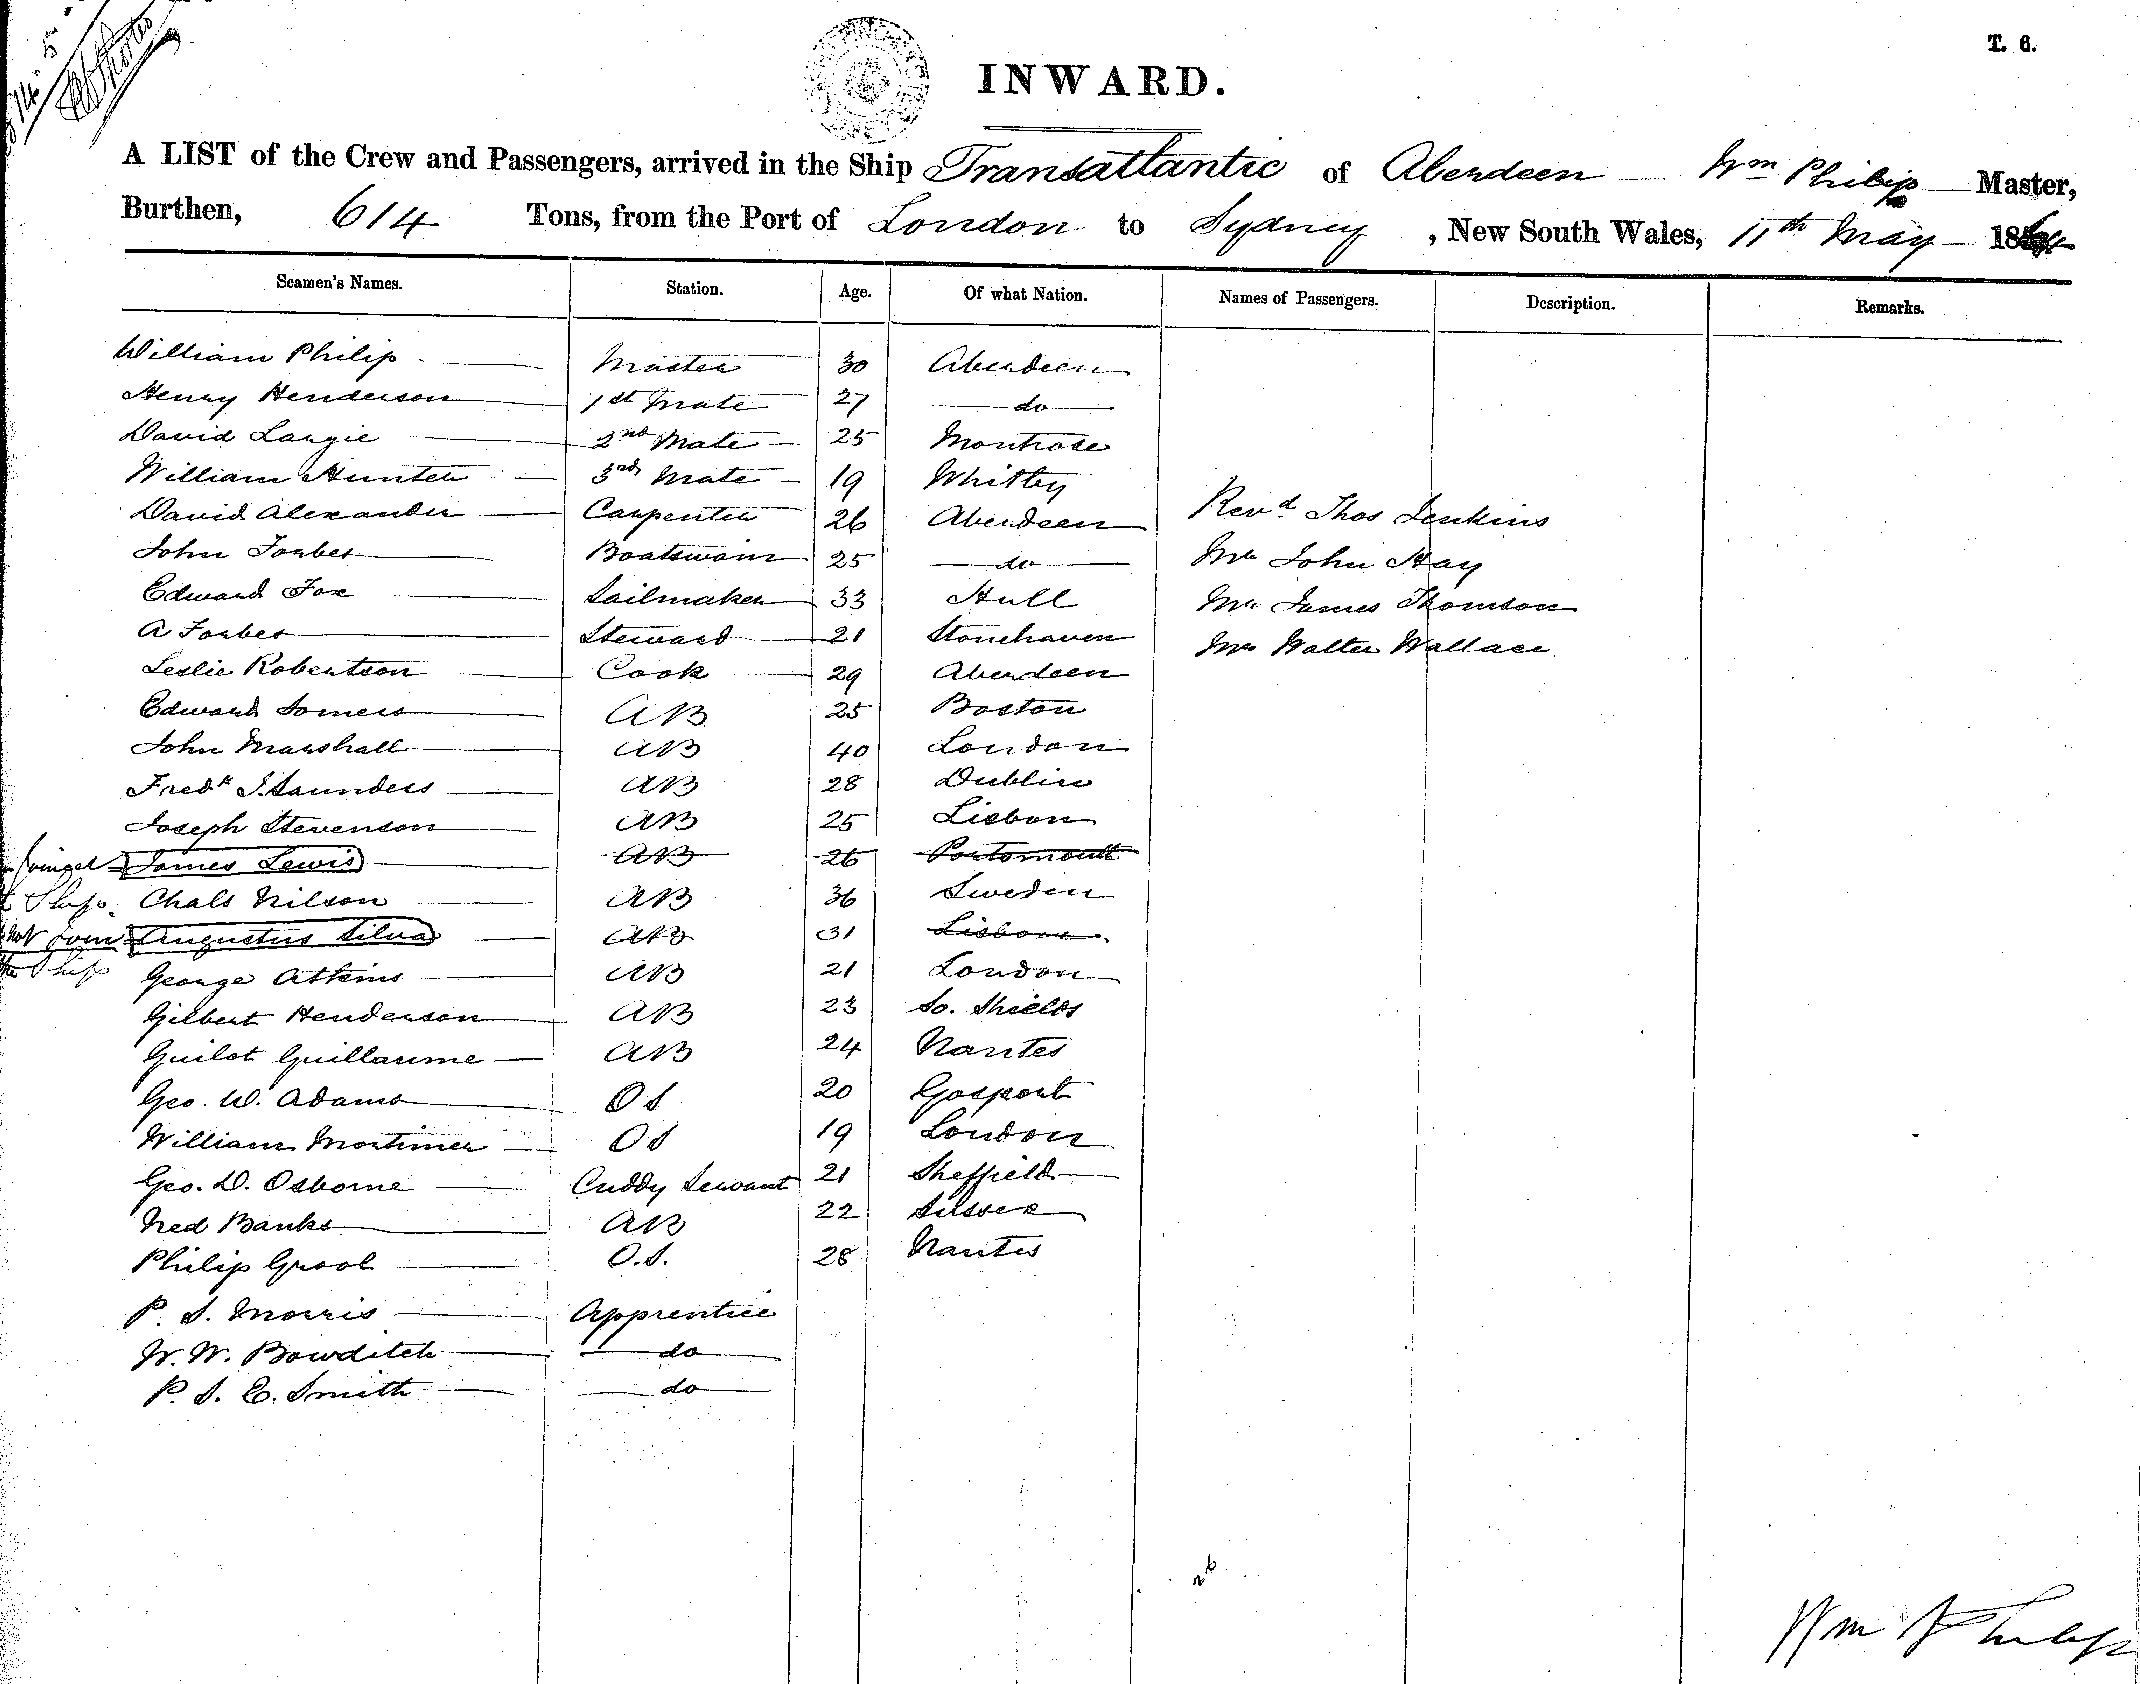 T. 6.
INWARD.
A LIST of the Crew and Passengers, arrived in the Ship Transatlantic of Aberdeen Wm Philip Master,
Burthen, 614 Tons, from the Port of London to Sydney, New South Wales, 11th May 186
Seamen's Names. Station. Age. Of what Nation. Names of Passengers. Description. Remarks.
William Philip Master 30 Aberdeen
Henry Henderson 1st Mate 27 do
David Largie 2nd Mate 25 Montrose
William Hunter 3rd Mate 19 Whitby
David Alexander Carpenter 26 Aberdeen Revd Thos Jenkins
John Forbes Boatswain 25 do Mr John Hay
Edward Fox Sailmaker 33 Hull Mr James Thomson
A Forbes Steward 21 Stonehaven Mr Walter Wallace
Leslie Robertson Cook 29 Aberdeen
Edward Somers AB 25 Boston
John Marshall AB 40 London
Fredk J. Saunders AB 28 Dublin
Joseph Stevenson AB 25 Lisbon
James Lewis AB 26 Portsmouth
Ship. Chals Nilson AB 36 Sweden
not join Augustus Silva AB 31 Lisbon
the Ship George Atkins AB 21 London
Gilbert Henderson AB 23 So. Shields
Guilot Guillaume AB 24 Nantes
Geo. W. Adams OS 20 Gosport
William Mortimer OS 19 London
Geo. D. Osborne Cuddy Servant 21 Sheffield
Ned Banks AB 22 Sussex
Philip Grool O.S. 28 Nantes
P. S. Morris Apprentice
W. W. Bowditch do
P. S. E. Smith do
26
Wm Philip